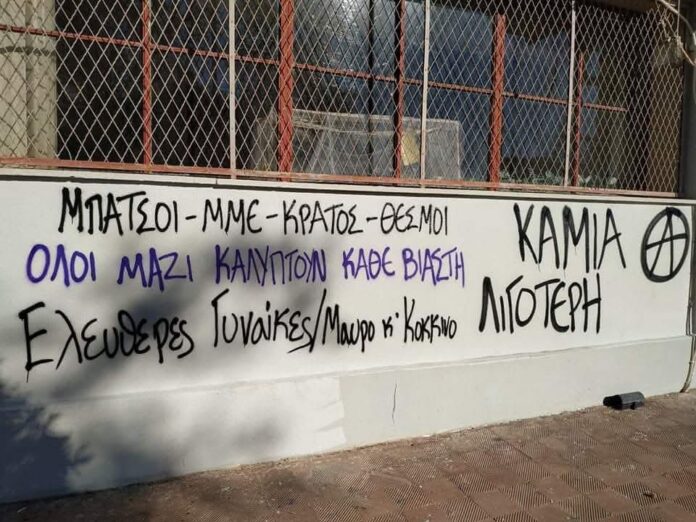 ΜΠΑΤΣΟΙ-ΜΜΕ-ΚΡΑΤΟΣ-ΘΕΣΜΟΙ
ΟΛΟΙ ΜΑΖΙ ΚΑΛΥΠΤΟΥΝ ΚΑΘΕ ΒΙΑΣΤΗ
Ελευθερες Γυναίκες/Μαυρο κ' Κοκκινο
ΚΑΜΙΑ Α
ΛΙΓΟΤΕΡΗ